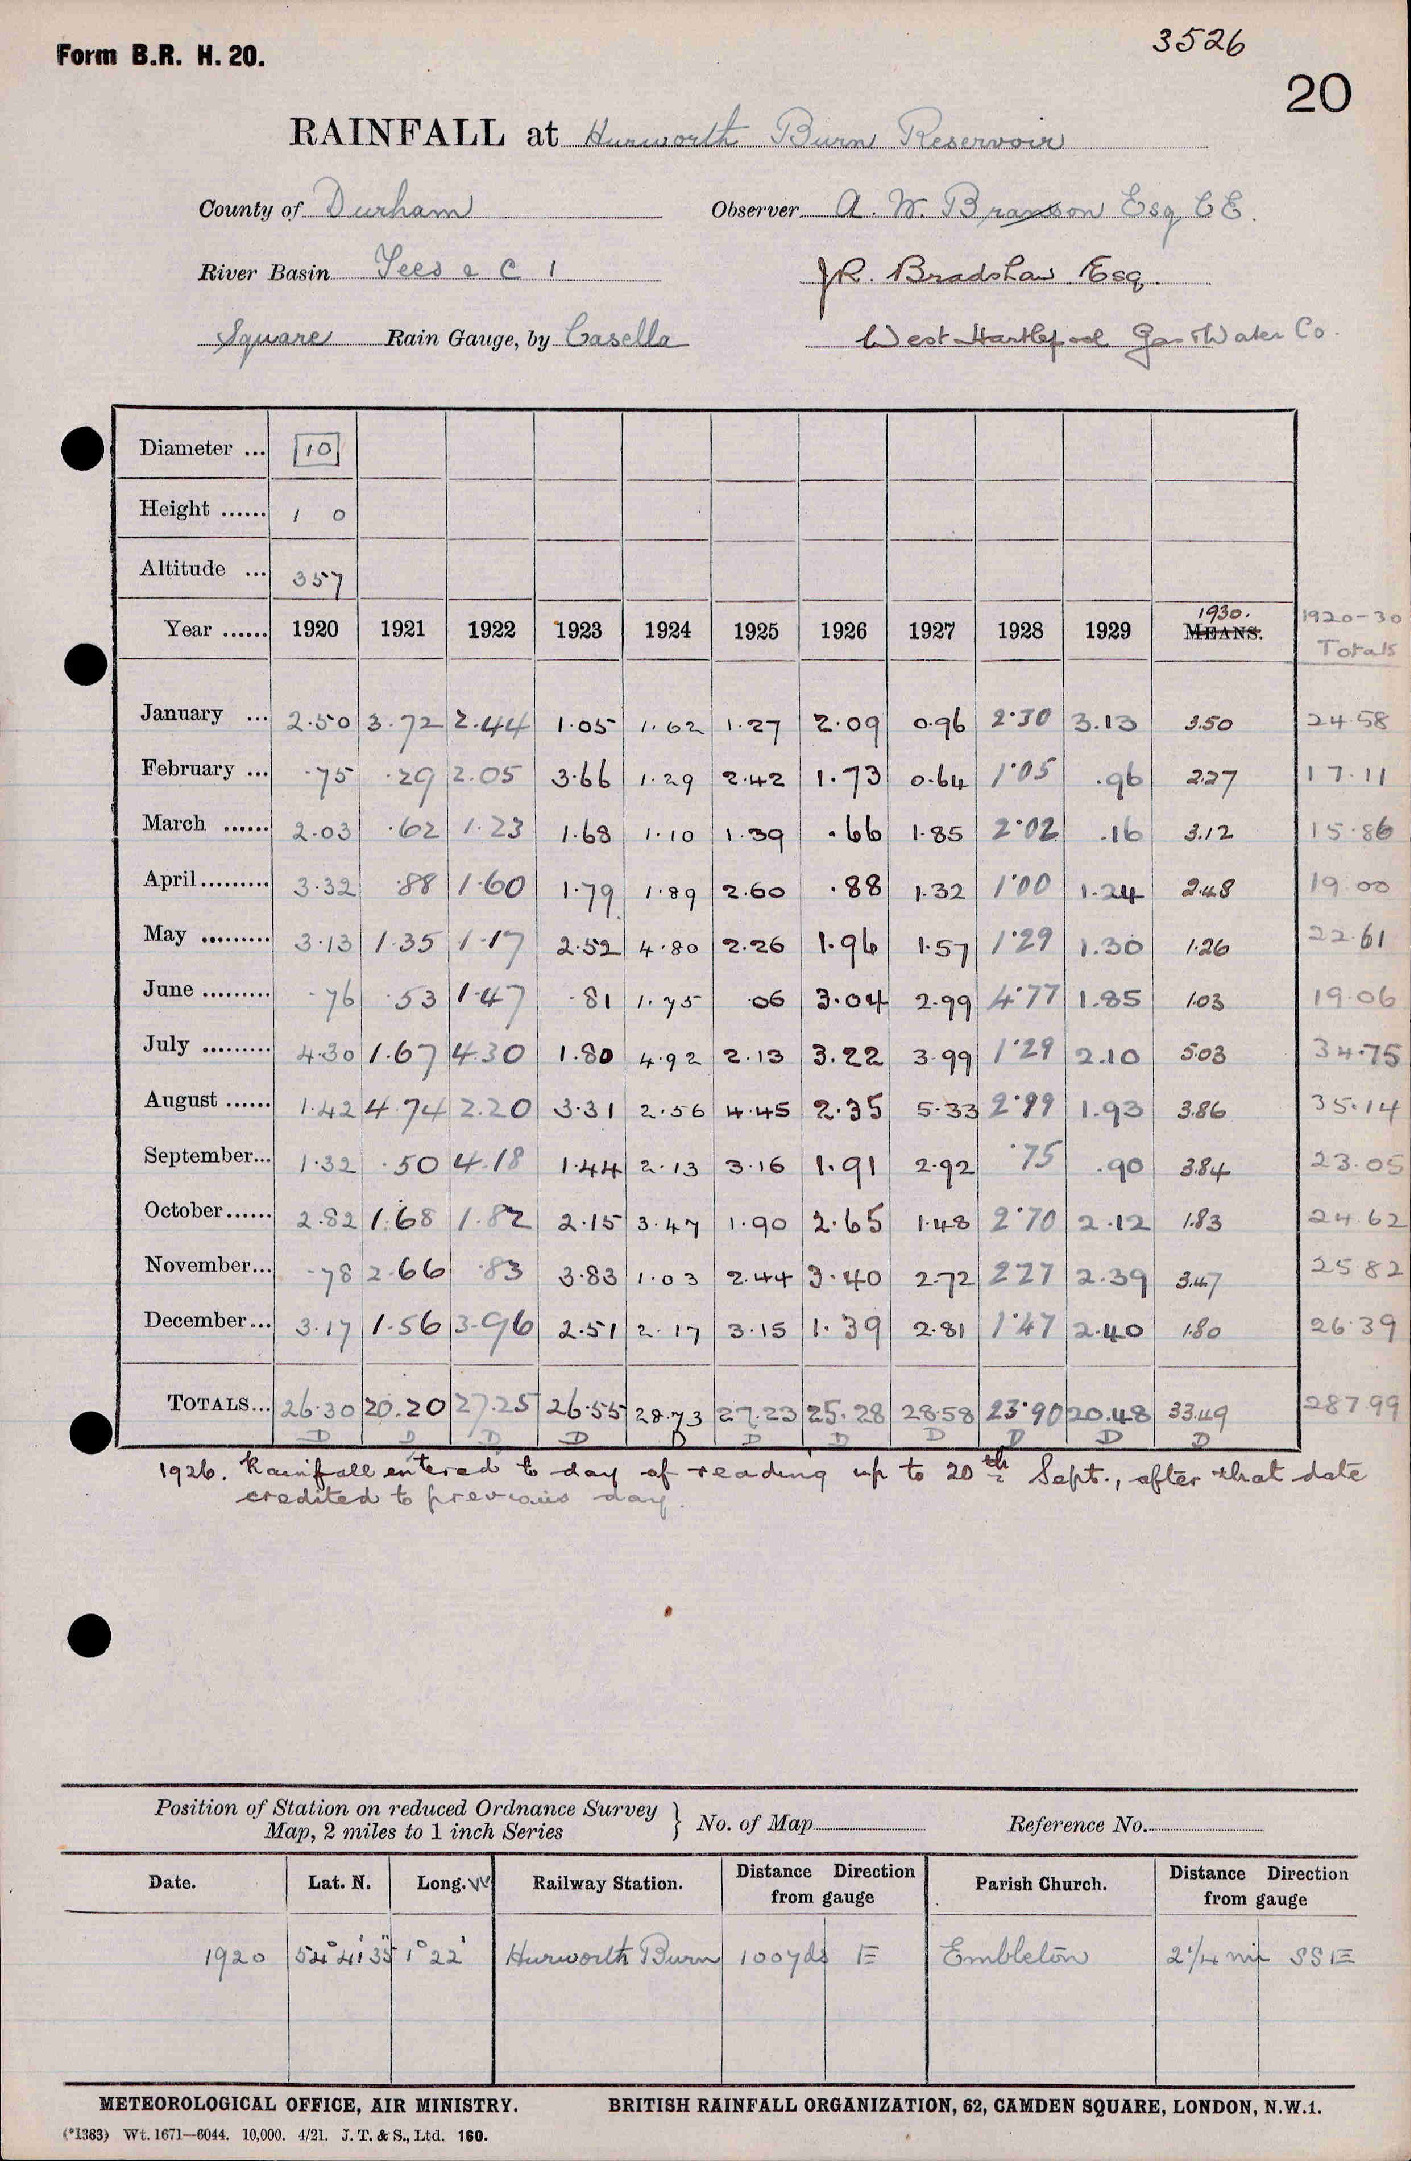 Form B.R. H. 20.
3526
20
RAINFALL at Hurworth Burn Reservoir
County of Durham Observer A. W. Branson Esq C E.
River Basin Tees & C 1 J R. Bradshaw Esq.
Square Rain Gauge, by Casella West Hartlepool Gas & Water Co.
Diameter ... 10
Height ...... 1 0
Altitude ... 357
Year ...... 1920 1921 1922 1923 1924 1925 1926 1927 1928 1929 1930. MEANS. 1920-30 Totals
January ... 2.50 3.72 2.44 1.05 1.62 1.27 2.09 0.96 2.30 3.13 3.50 24.58
February ... .75 .29 2.05 3.66 1.29 2.42 1.73 0.64 1.05 .96 2.27 17.11
March ...... 2.03 .62 1.23 1.68 1.10 1.39 .66 1.85 2.02 .16 3.12 15.86
April......... 3.32 .88 1.60 1.79 1.89 2.60 .88 1.32 1.00 1.24 2.48 19.00
May ......... 3.13 1.35 1.17 2.52 4.80 2.26 1.96 1.57 1.29 1.30 1.26 22.61
June ......... .76 .53 1.47 .81 1.75 .06 3.04 2.99 4.77 1.85 1.03 19.06
July ......... 4.30 1.67 4.30 1.80 4.92 2.13 3.22 3.99 1.29 2.10 5.03 34.75
August ...... 1.42 4.74 2.20 3.31 2.56 4.45 2.35 5.33 2.99 1.93 3.86 35.14
September... 1.32 .50 4.18 1.44 2.13 3.16 1.91 2.92 .75 .90 3.84 23.05
October...... 2.82 1.68 1.82 2.15 3.47 1.90 2.65 1.48 2.70 2.12 1.83 24.62
November... .78 2.66 .83 3.83 1.03 2.44 3.40 2.72 2.27 2.39 3.47 25.82
December... 3.17 1.56 3.96 2.51 2.17 3.15 1.39 2.81 1.47 2.40 1.80 26.39
TOTALS... 26.30 20.20 27.25 26.55 28.73 27.23 25.28 28.58 23.90 20.48 33.49 287.99
D D D D D D D D D D D
1926. Rainfall entered to day of reading up to 20th Sept., after that date
credited to previous day.
Position of Station on reduced Ordnance Survey
Map, 2 miles to 1 inch Series } No. of Map Reference No.
Date. Lat. N. Long. W Railway Station. Distance Direction from gauge Parish Church. Distance Direction from gauge
1920 54° 41' 35" 1° 22' Hurworth Burn 100yds E Embleton 2 1/4 mi SSE
METEOROLOGICAL OFFICE, AIR MINISTRY. BRITISH RAINFALL ORGANIZATION, 62, CAMDEN SQUARE, LONDON, N.W.1.
(*1383) Wt. 1671—6044. 10,000. 4/21. J. T. & S., Ltd. 160.